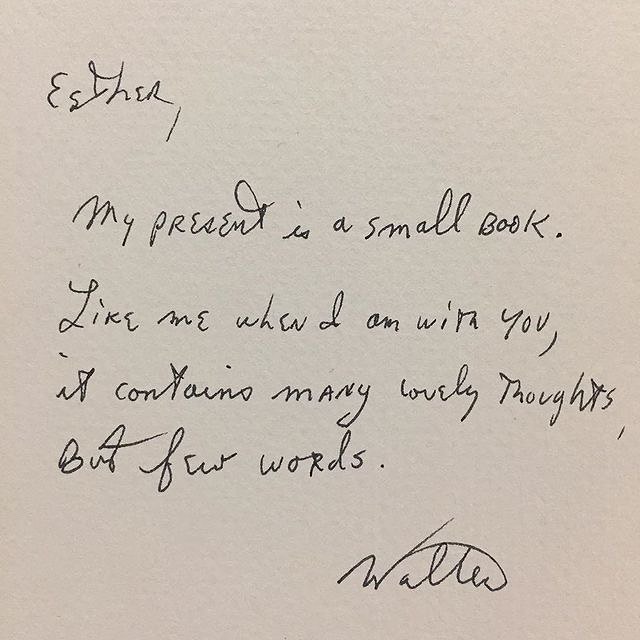 Esther,
My present is a small book.
Like me when I am with you,
it contains many lovely thoughts,
But few words.
Walter